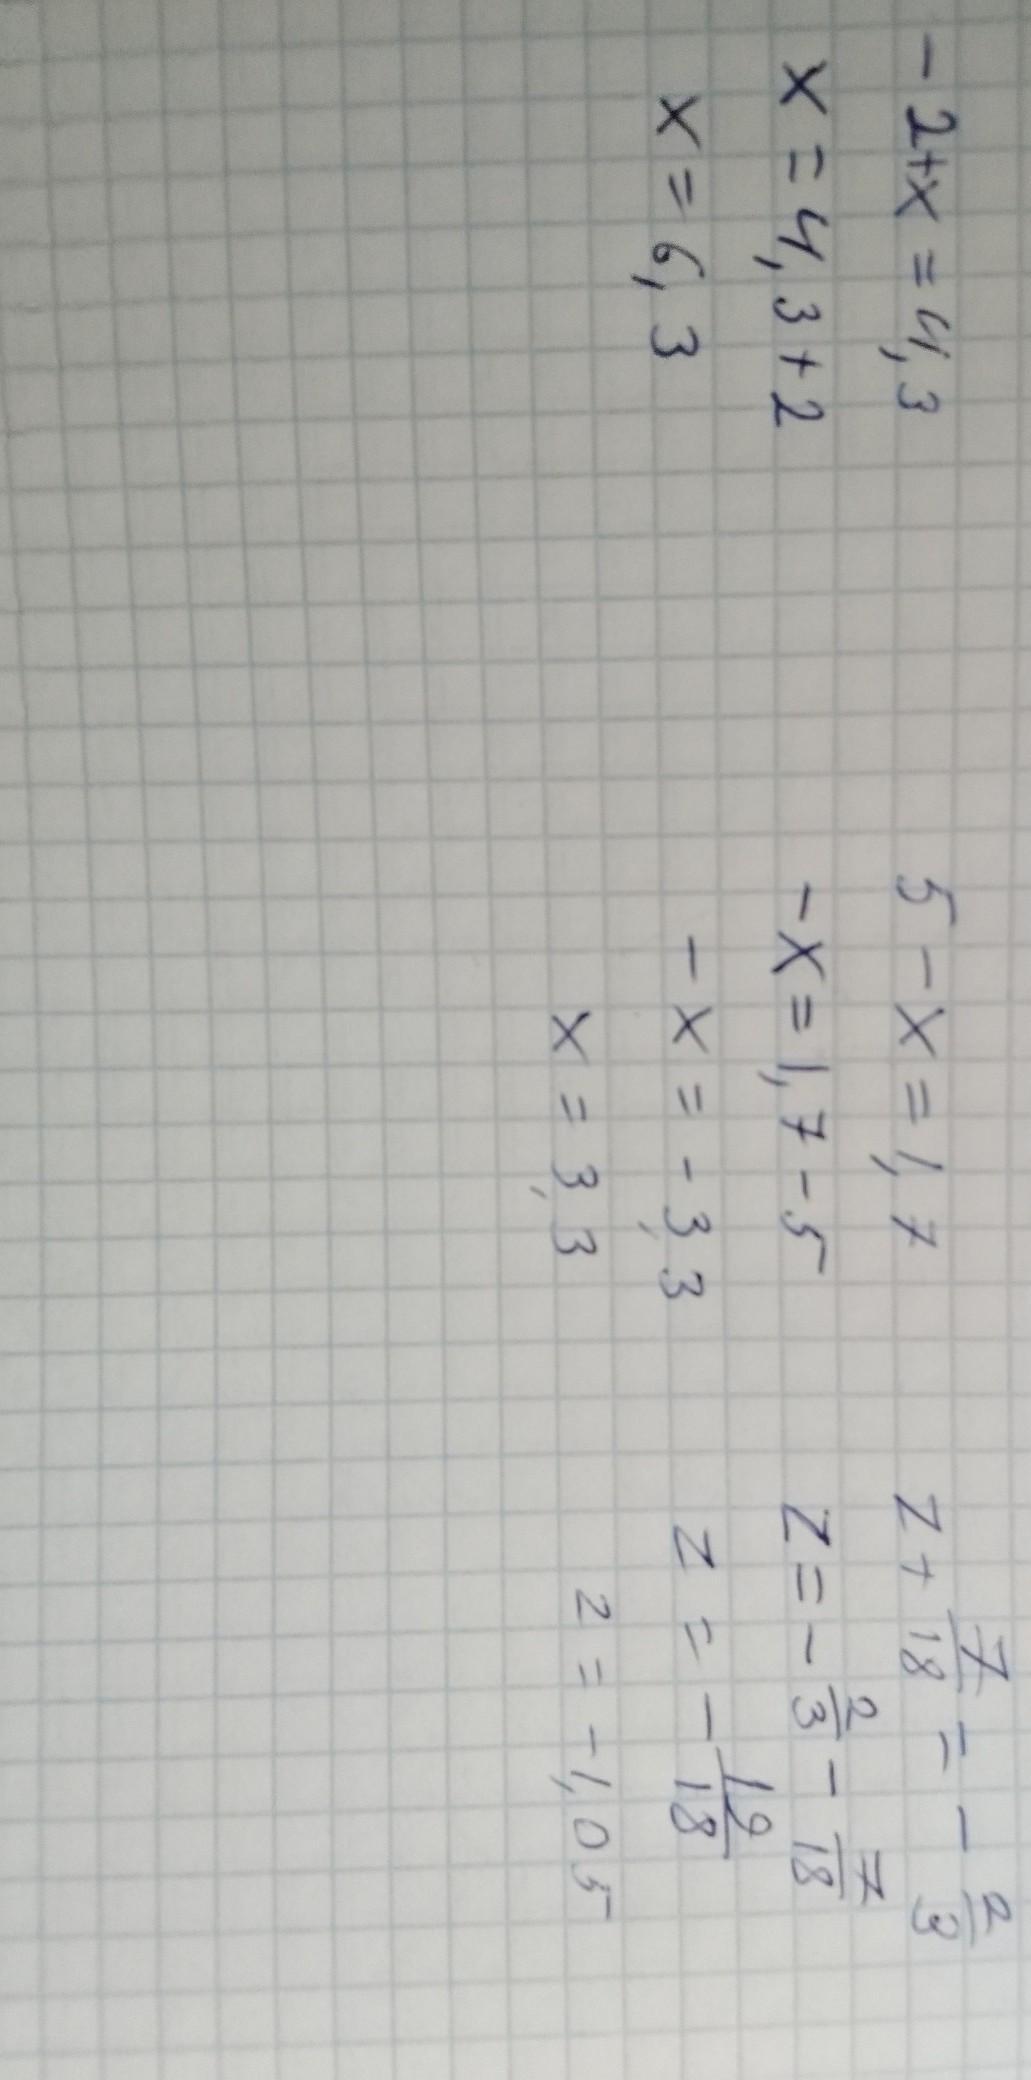 -2+x=4,3
x=4,3+2
x=6,3
5-x=1,7
-x=1,7-5
-x=-3,3
x=3,3
z+7/18=-2/3
z=-2/3-7/18
z=-19/18
z=-1,05